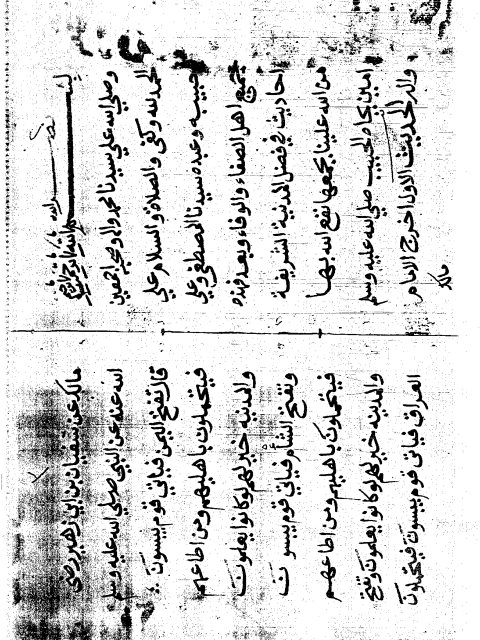 بسم الله الرحمن الرحيم
وصلي الله علي سيدنا محمد واله وصحبه اجمعين
الحمد لله وكفي والصلاة والسلام علي
حبيبه وعبده سيدنا المصطفي وعلي
جميع اهل الصفاء والوفاء وبعد فهذه
احاديث في فضل المدينة الشريفة
من الله علينا بجمعها نفع الله بها
امين بجاه الحبيب صلي الله عليه وسلم
واله الحديث الاول اخرج الامام
مالك
مالك عن سفيان بن ابي زهير رضي
الله عنه عن النبي صلي الله عليه وسلم
قال تفتح اليمن فياتي قوم يبسون
فيتحملون باهليهم ومن اطاعهم
والمدينه خير لهم لو كانوا يعلمون
وتفتح الشام فياتي قوم يبسون
فيتحملون باهليهم ومن اطاعهم
والمدينه خير لهم لو كانوا يعلمون وتفتح
العراق فياتي قوم يبسون فيتحملون